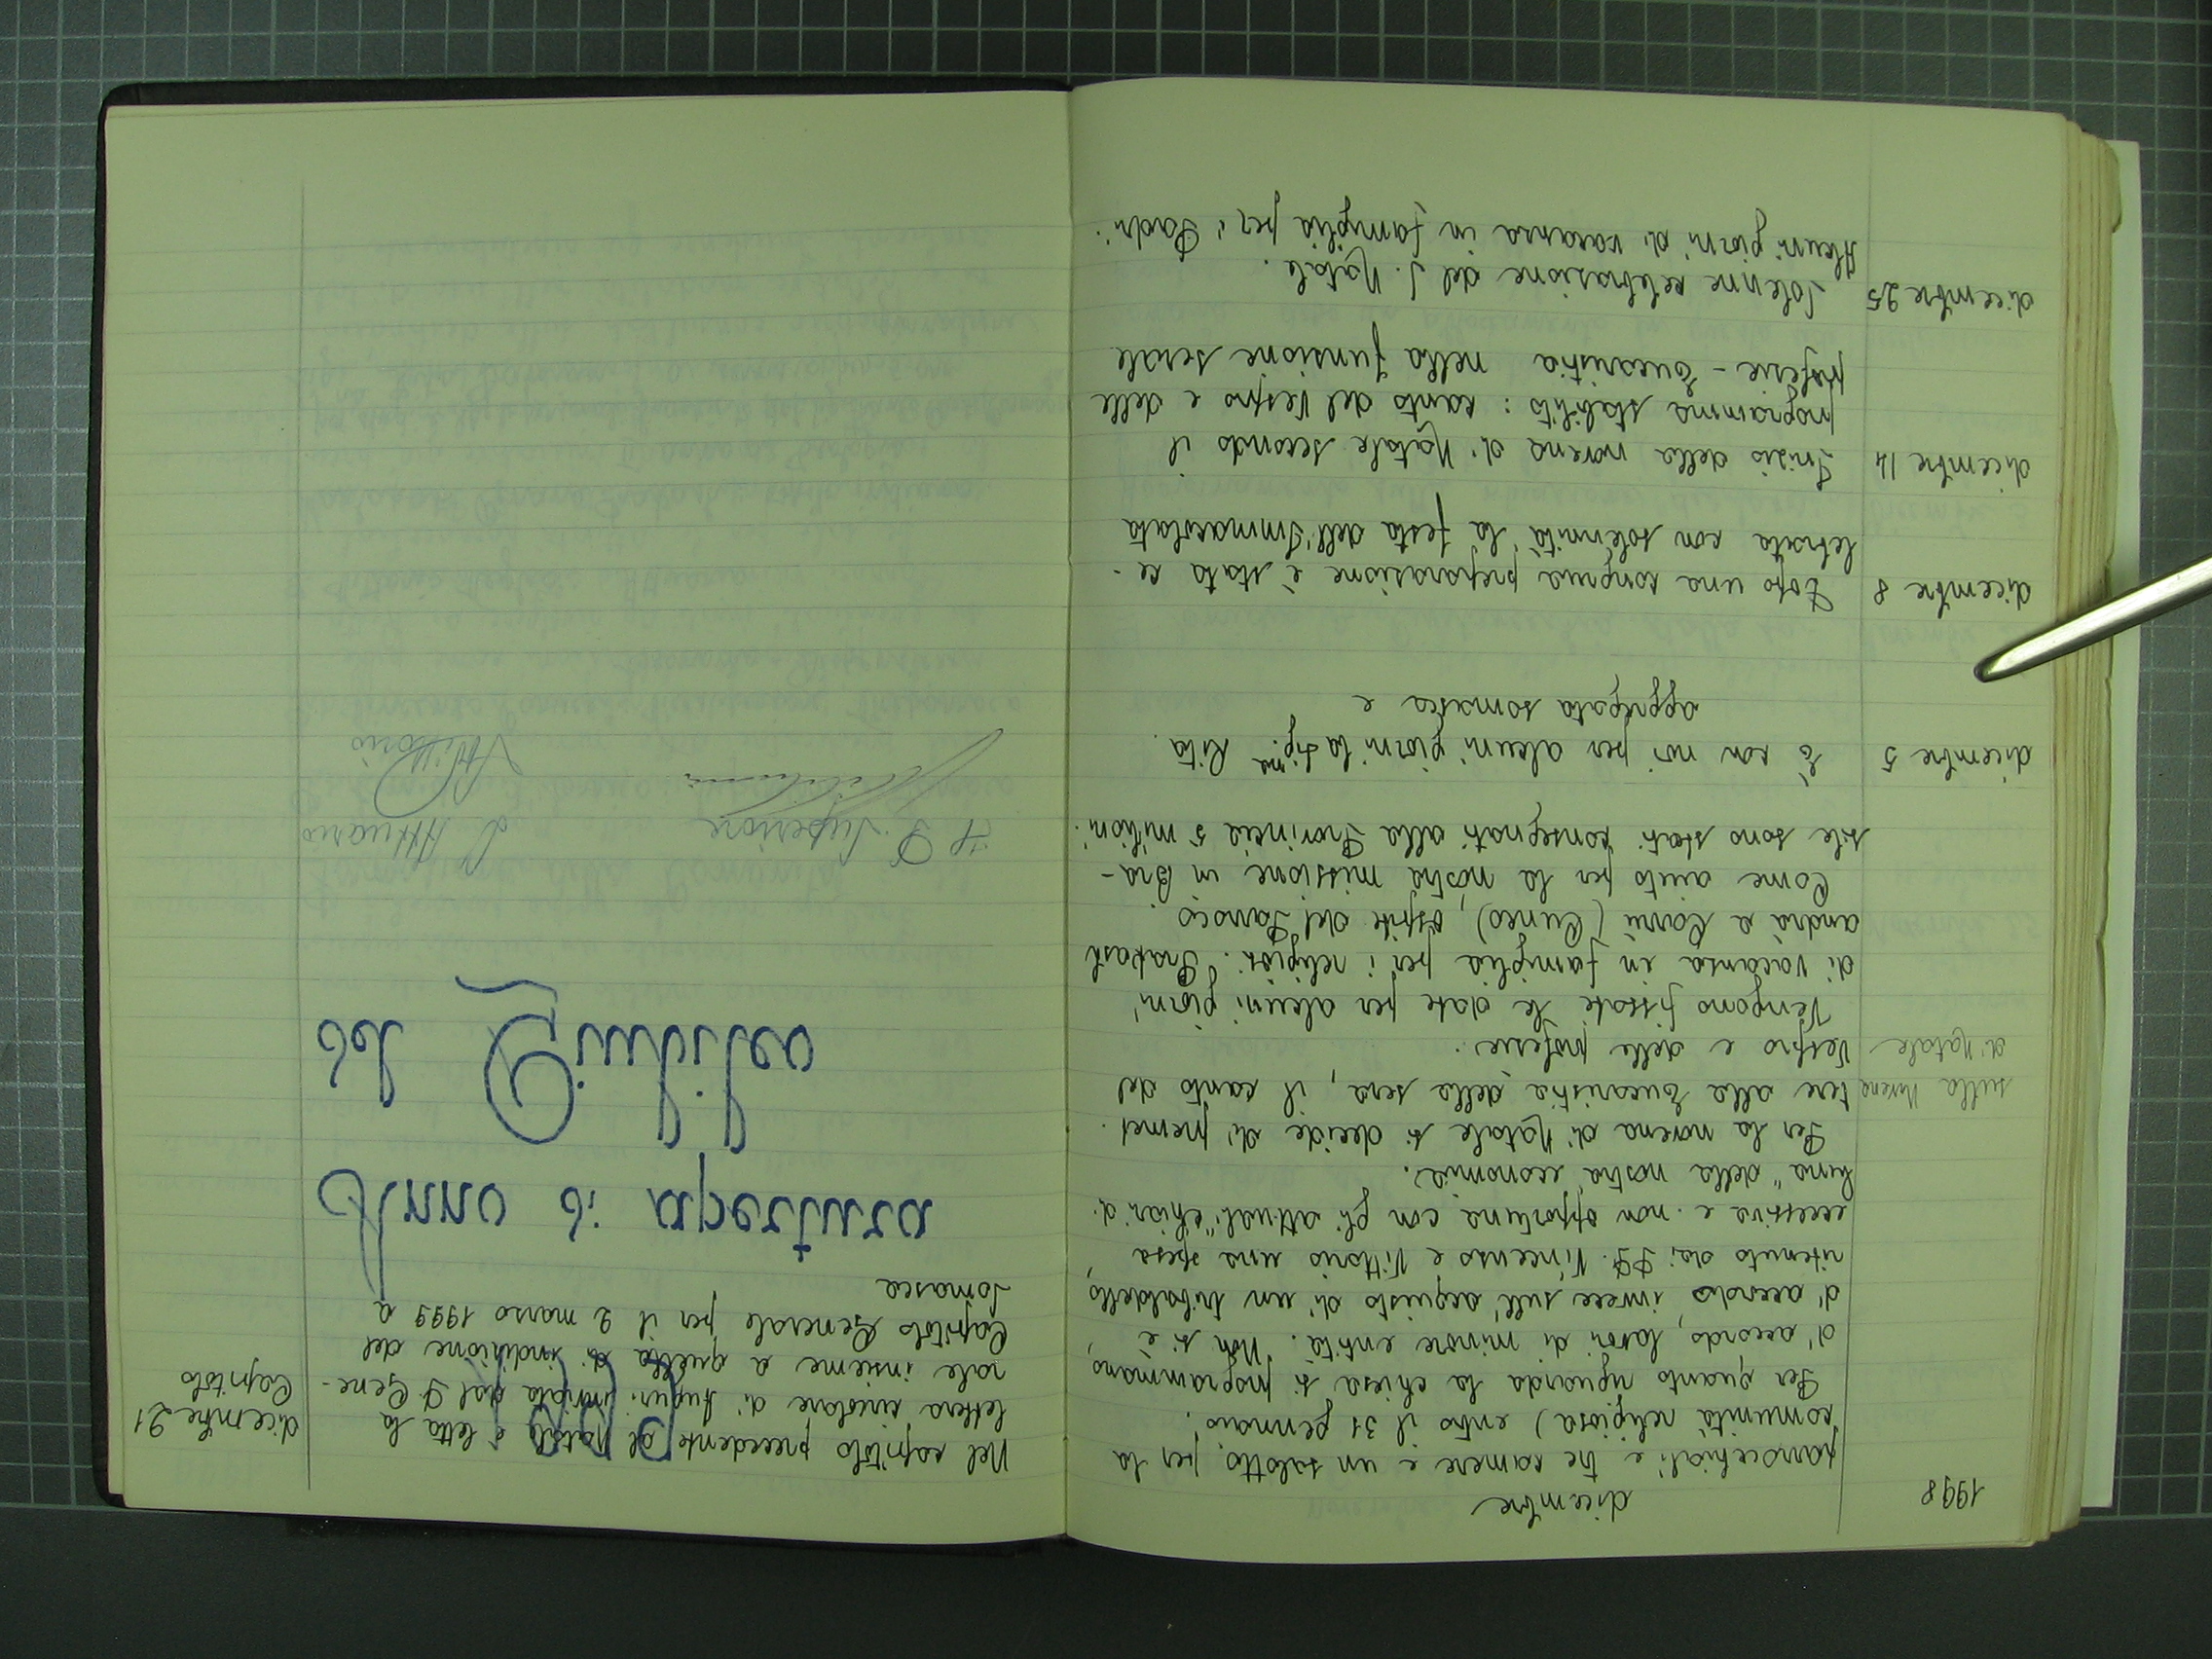 1998
dicembre
parrocchiali e tre camere e un salotto per la
comunità religiosa) entro il 31 gennaio.
Per quanto riguarda la chiesa si programmano,
d'accordo, lavori di minore entità. Non si è
d'accordo invece sull'acquisto di un tribaldello,
ritenuto dai PP. Vincenzo e Vittorio una spesa
eccessiva e non opportuna con gli attuali "chiari di
luna" della nostra economia.
Per la novena di Natale si decide di premet-
sulla Novena
di Natale
tere alla Eucaristia della sera, il canto del
Vespro e delle profezie.
Vengono fissate le date per alcuni giorni
di vacanza in famiglia per i religiosi. Prakash
andrà a Carrù (Cuneo), ospite del Parroco.
Come aiuto per la nostra missione in Bra-
sile sono stati consegnati alla Provincia 5 milioni.
dicembre 5 È con noi per alcuni giorni la Sig.na Rita
aggregata somasca
dicembre 8 Dopo una congrua preparazione è stata ce-
lebrata con solennità la festa dell'Immacolata
dicembre 14 Inizio della novena di Natale secondo il
programma stabilito: canto del Vespro e delle
profezie - Eucaristia nella funzione serale
dicembre 25 Solenne celebrazione del S. Natale.
Alcuni giorni di vacanza in famiglia per i Padri.
Nel capitolo precedente al Natale è letta la
dicembre 21
Capitolo
lettera circolare di Auguri inviata dal P. Gene-
rale insieme a quella di indizione del
Capitolo Generale per il 2 marzo 1999 a
Somasca
Anno di apertura
del Giubileo
Il P. Superiore
L'Attuario